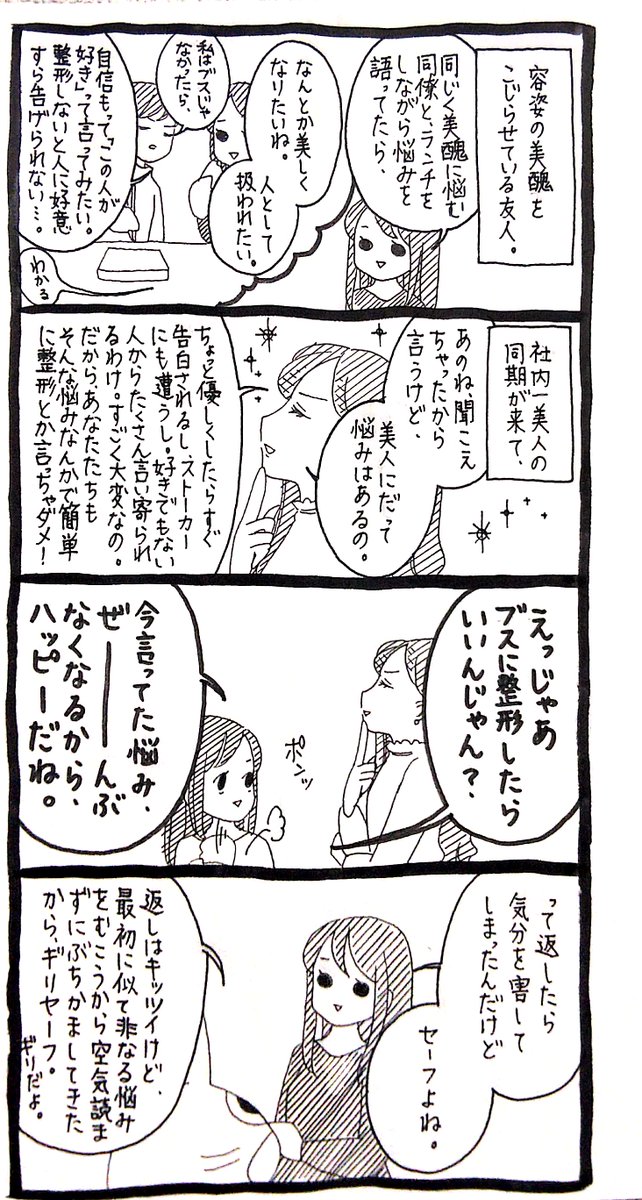 容姿の美醜を
こじらせている友人。
同じく美醜に悩む
同僚と、ランチを
しながら悩みを
語ってたら、
なんとか美しく
なりたいね。
人として
扱われたい。
私はブスじゃ
なかったら、
自信もって「この人が
好き」って言ってみたい。
整形しないと人に好意
すら告げられない…。
わかる
社内一美人の
同期が来て、
あのね、聞こえ
ちゃったから
言うけど、
美人にだって
悩みはあるの。
ちょっと優しくしたらすぐ
告白されるし、ストーカー
にも遭うし。好きでもない
人からたくさん言い寄られ
るわけ。すごく大変なの。
だから、あなたたちも
そんな悩みなんかで簡単
に整形とか言っちゃダメ!
えっじゃあ
ブスに整形したら
いいんじゃん?
ポンッ
今言ってた悩み、
ぜーーーんぶ
なくなるから、
ハッピーだね。
って返したら
気分を害して
しまったんだけど
セーフよね。
返しはキッツイけど、
最初に似て非なる悩み
をむこうから空気読ま
ずにぶちかましてきた
から、ギリセーフ。
ギリだよ。